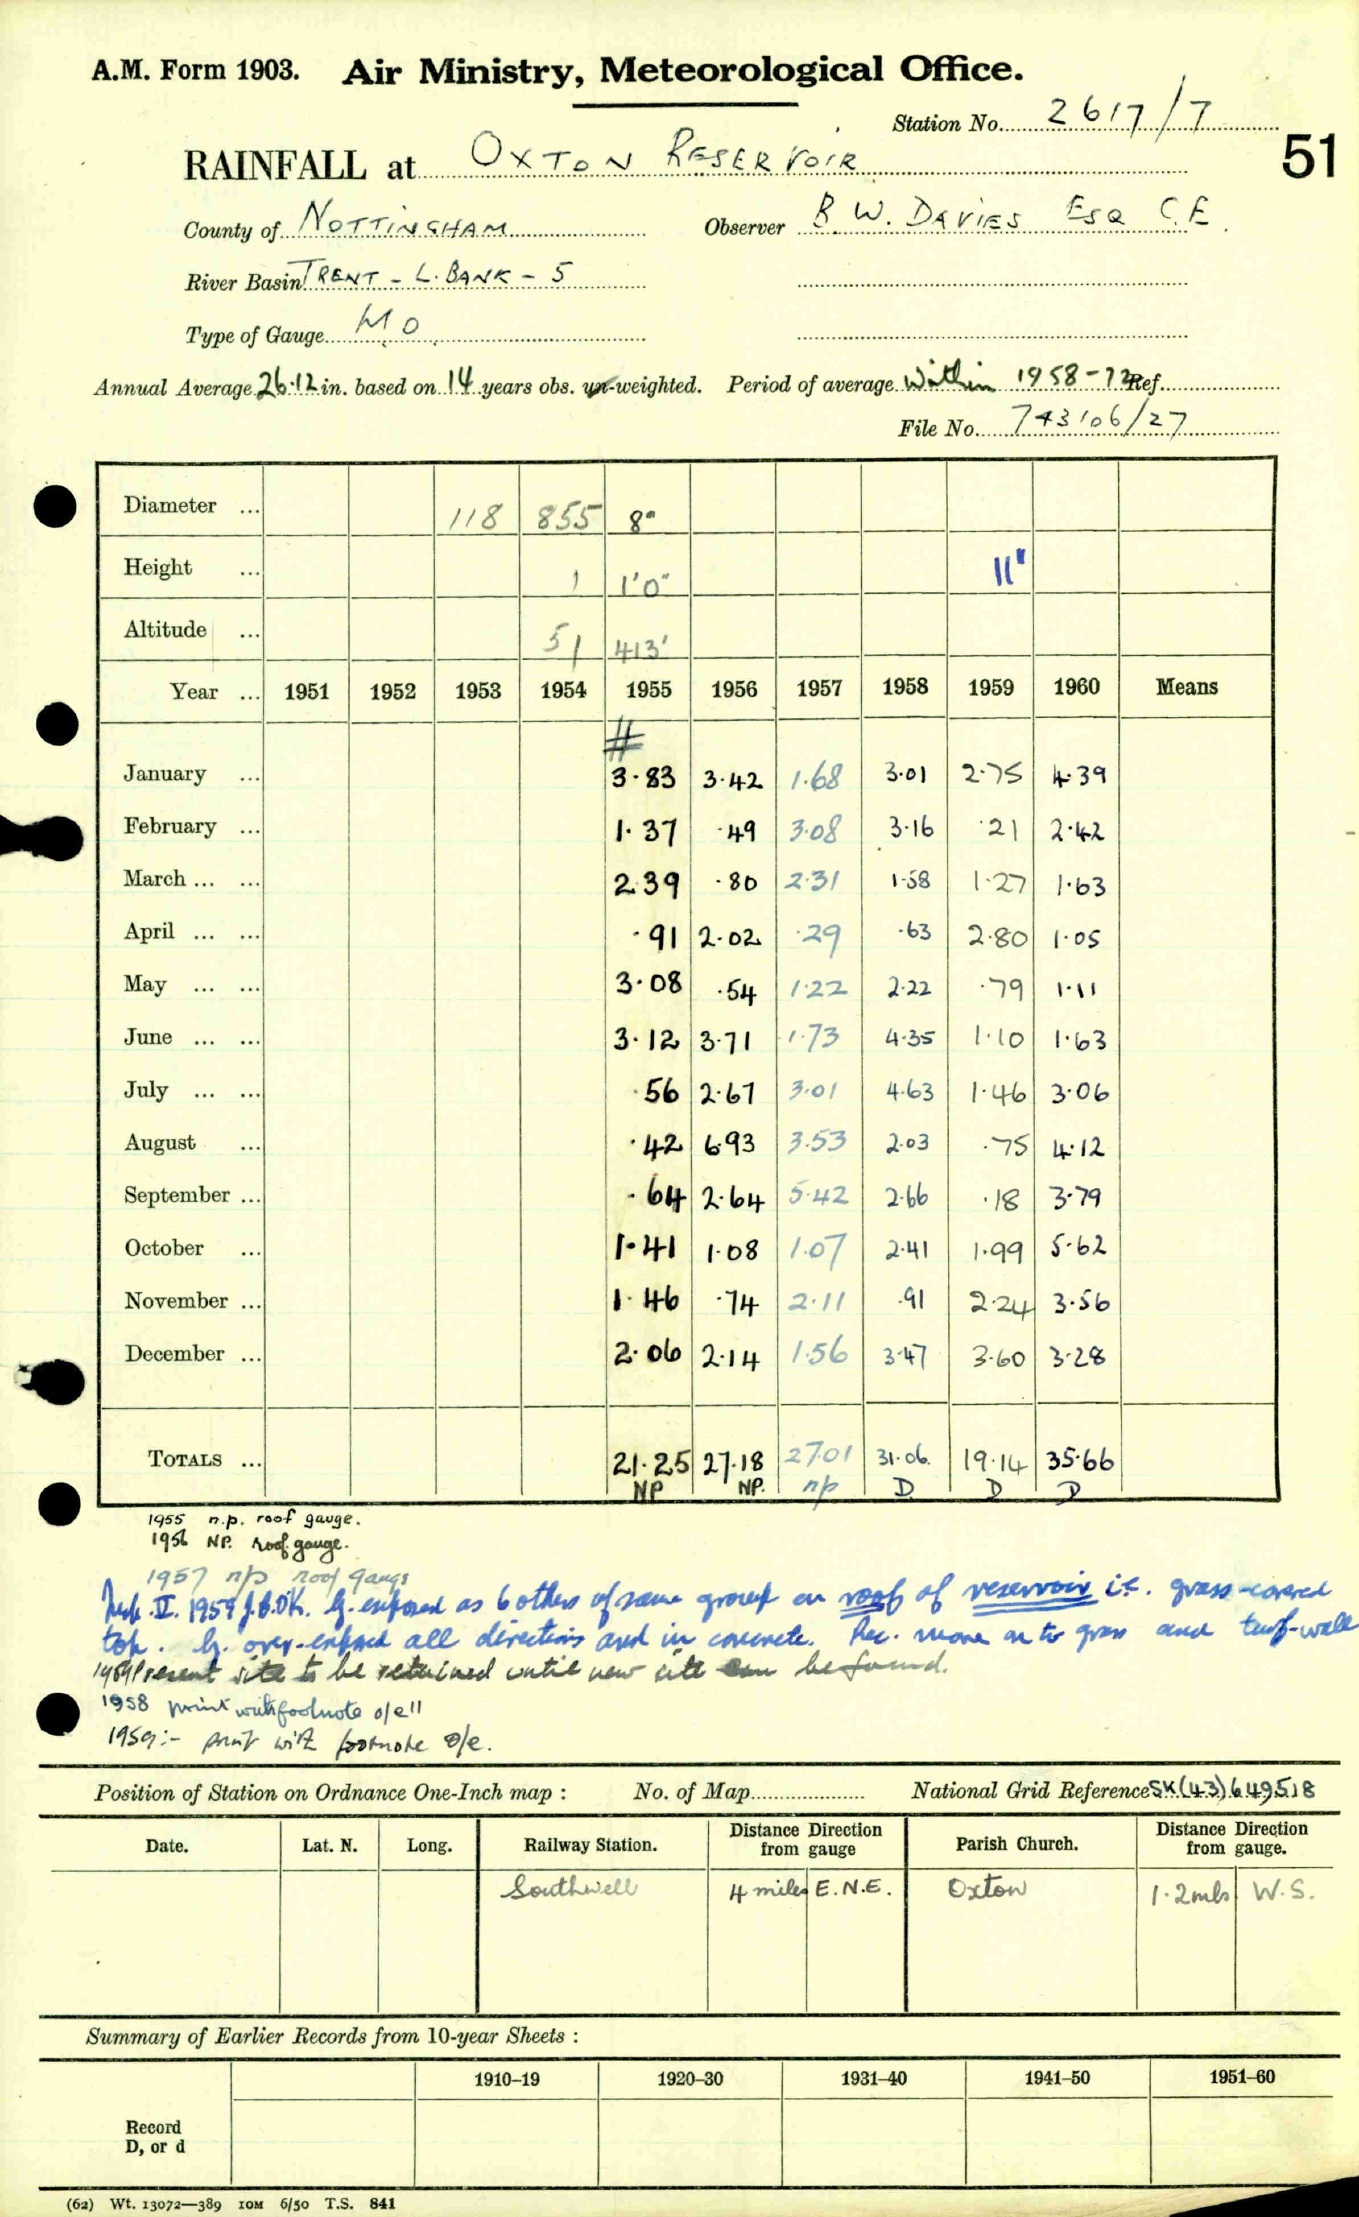 A.M. Form 1903. Air Ministry, Meteorological Office.
Station No. 2617/7
51
RAINFALL at OXTON RESERVOIR
County of NOTTINGHAM Observer B.W. DAVIES ESQ C.E.
River Basin TRENT - L. BANK - 5
Type of Gauge MO
Annual Average 26.12 in. based on 14 years obs. un-weighted. Period of average Within 1958-72 Ref.
File No. 743106/27
Diameter ... 118 855 8"
Height ... 1 1'0" 11"
Altitude ... 51 413'
Year ... 1951 1952 1953 1954 1955 1956 1957 1958 1959 1960 Means
#
January ... 3.83 3.42 1.68 3.01 2.75 4.39
February ... 1.37 .49 3.08 3.16 .21 2.42
March ... ... 2.39 .80 2.31 1.58 1.27 1.63
April ... ... .91 2.02 .29 .63 2.80 1.05
May ... ... 3.08 .54 1.22 2.22 .79 1.11
June ... ... 3.12 3.71 1.73 4.35 1.10 1.63
July ... ... .56 2.67 3.01 4.63 1.46 3.06
August ... .42 6.93 3.53 2.03 .75 4.12
September ... .64 2.64 5.42 2.66 .18 3.79
October ... 1.41 1.08 1.07 2.41 1.99 5.62
November ... 1.46 .74 2.11 .91 2.24 3.56
December ... 2.06 2.14 1.56 3.47 3.60 3.28
TOTALS ... 21.25 27.18 27.01 31.06 19.14 35.66
NP NP. np D D D
1955 n.p. roof gauge.
1956 NP. roof gauge.
1957 n/p roof gauge
Insp. II. 1959 J.B.OK. G. exposed as 6 others of same group on roof of reservoir i.e. grass-covered
top. G. over-exposed all directions and in concrete. Rec. move on to grass and turf-wall
1959 Present site to be retained until new site can be found.
1958 print with footnote o/e
1959:- print with footnote o/e.
Position of Station on Ordnance One-Inch map : No. of Map National Grid Reference SK(43)649518
Date. Lat. N. Long. Railway Station. Distance Direction from gauge Parish Church. Distance Direction from gauge.
Southwell 4 miles E.N.E. Oxton 1.2 mls W.S.
Summary of Earlier Records from 10-year Sheets :
1910–19 1920–30 1931–40 1941–50 1951–60
Record
D, or d
(62) Wt. 13072—389 10M 6/50 T.S. 841